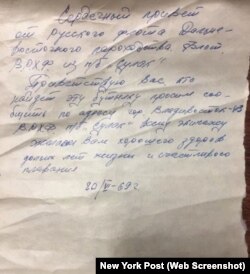 Сердечный привет
от Русского флота Дальне-
восточного пароходства. Флот
ВРХФ из п/б „Сулак"
Приветствую Вас кто
найдет эту бутылку просим сооб-
щить по адресу гор Владивосток-43
ВРХФ п/б „Сулак" всему экипажу
желаем Вам хорошего здоровья
долгих лет жизни и счастливого
плавания
20/VI-69г.
New York Post (Web Screenshot)